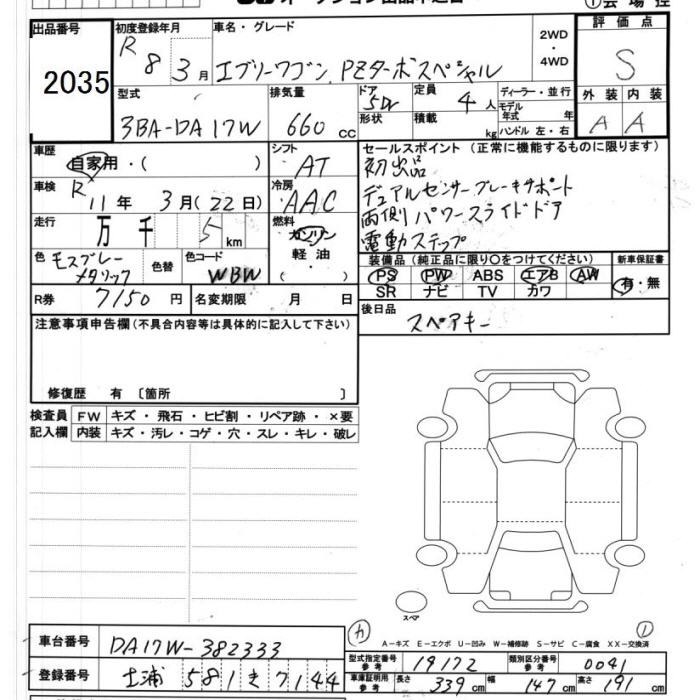 出品番号 2035
初度登録年月 R8 3月
車名・グレード エブリーワゴン PZターボスペシャル
2WD・4WD
評価点 S
外装 A 内装 A
型式 3BA-DA17W
排気量 660 cc
ドア 5Dr 形状
定員 4人
積載 kg
ディーラー・並行
モデル年式 年
ハンドル 左・右
車歴 自家用・( )
シフト AT
セールスポイント (正常に機能するものに限ります)
初出品
デュアルセンサーブレーキサポート
両側パワースライドドア
電動ステップ
車検 R11年 3月(22日)
冷房 AAC
走行 万 千 5 km
燃料 ガソリン・軽油・( )
色 モスグレーメタリック
色替
色コード WBW
装備品 (純正品に限り○をつけてください)
PS PW ABS エアB AW
SR ナビ TV カワ
新車保証書 有・無
R券 7150円
名変期限 月 日
後日品 スペアキー
注意事項申告欄 (不具合内容等は具体的に記入して下さい)
修復歴 有 〔箇所 〕
検査員記入欄
FW キズ・飛石・ヒビ割・リペア跡・×要
内装 キズ・汚レ・コゲ・穴・スレ・キレ・破レ
スペア
カ
A-キズ E-エクボ U-凹み W-補修跡 S-サビ C-腐食 XX-交換済
車台番号 DA17W-382333
型式指定番号 参考 19172
類別区分番号 参考 0041
登録番号 土浦 581 そ 7144
車庫証明用 参考 長さ 339cm 幅 147cm 高さ 191cm